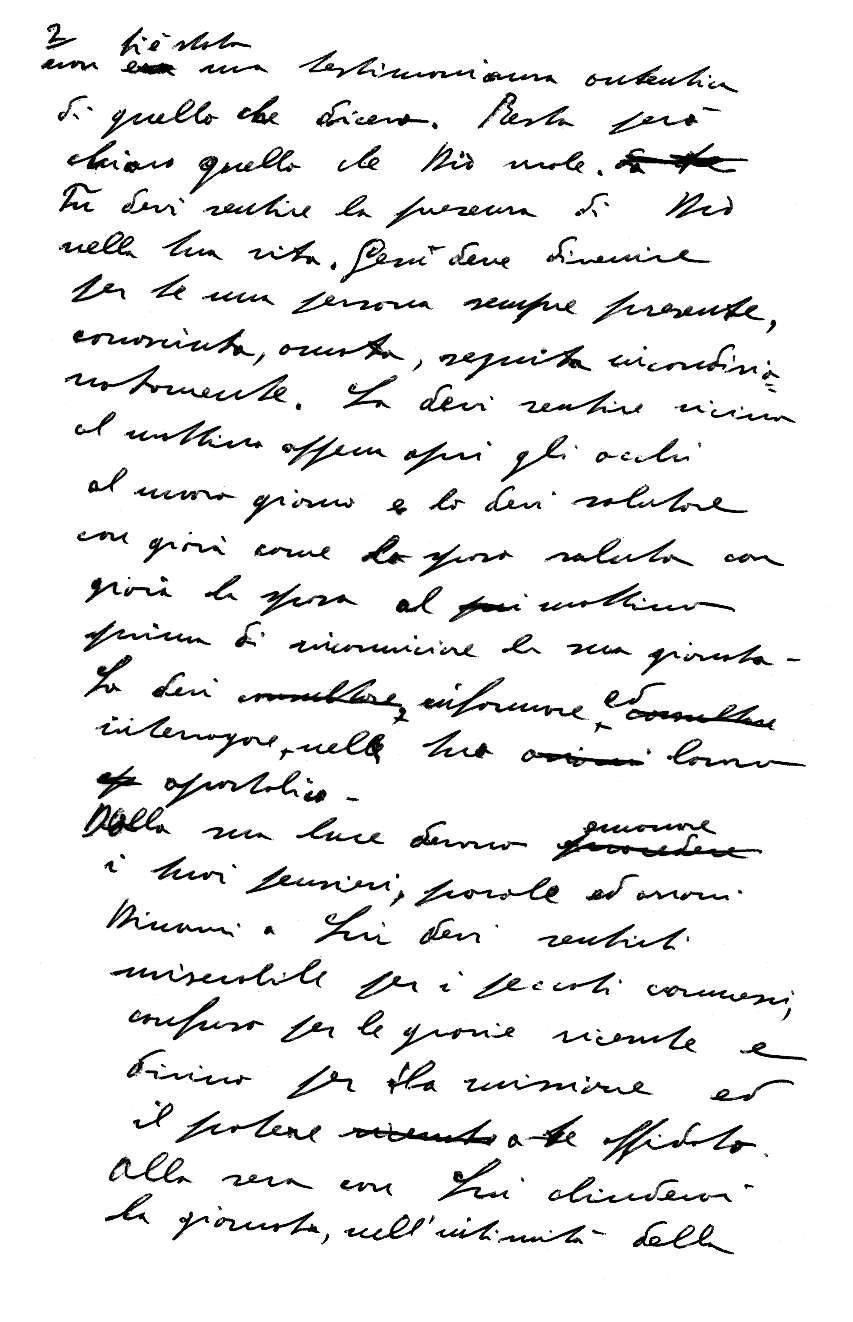 2 vi è stata
non era una testimonianza autentica
di quello che dicevo. Resta però
chiaro quello che Dio vuole. da te
Tu devi sentire la presenza di Dio
nella tua vita. Gesù deve divenire
per te una persona sempre presente,
conosciuta, amata, seguita incondizio=
natamente. Lo devi sentire vicino
al mattino appena apri gli occhi
al nuovo giorno e lo devi salutare
con gioia come lo sposo saluta con
gioia la sposa al mattino
prima di ricominciare la sua giornata -
Lo devi consultare, informare, ed consultare
interrogare, nella tuo azioni lavoro
ap apostolico -
Dalla sua luce devono emanare procedere
i tuoi pensieri, parole ed azioni
Dinanzi a Lui devi sentirti
miserabile per i peccati commessi,
confuso per le grazie ricevute e
divino per la missione ed
il potere ricevuto a te affidato.
Alla sera con Lui chiuderai
la giornata, nell'intimità della